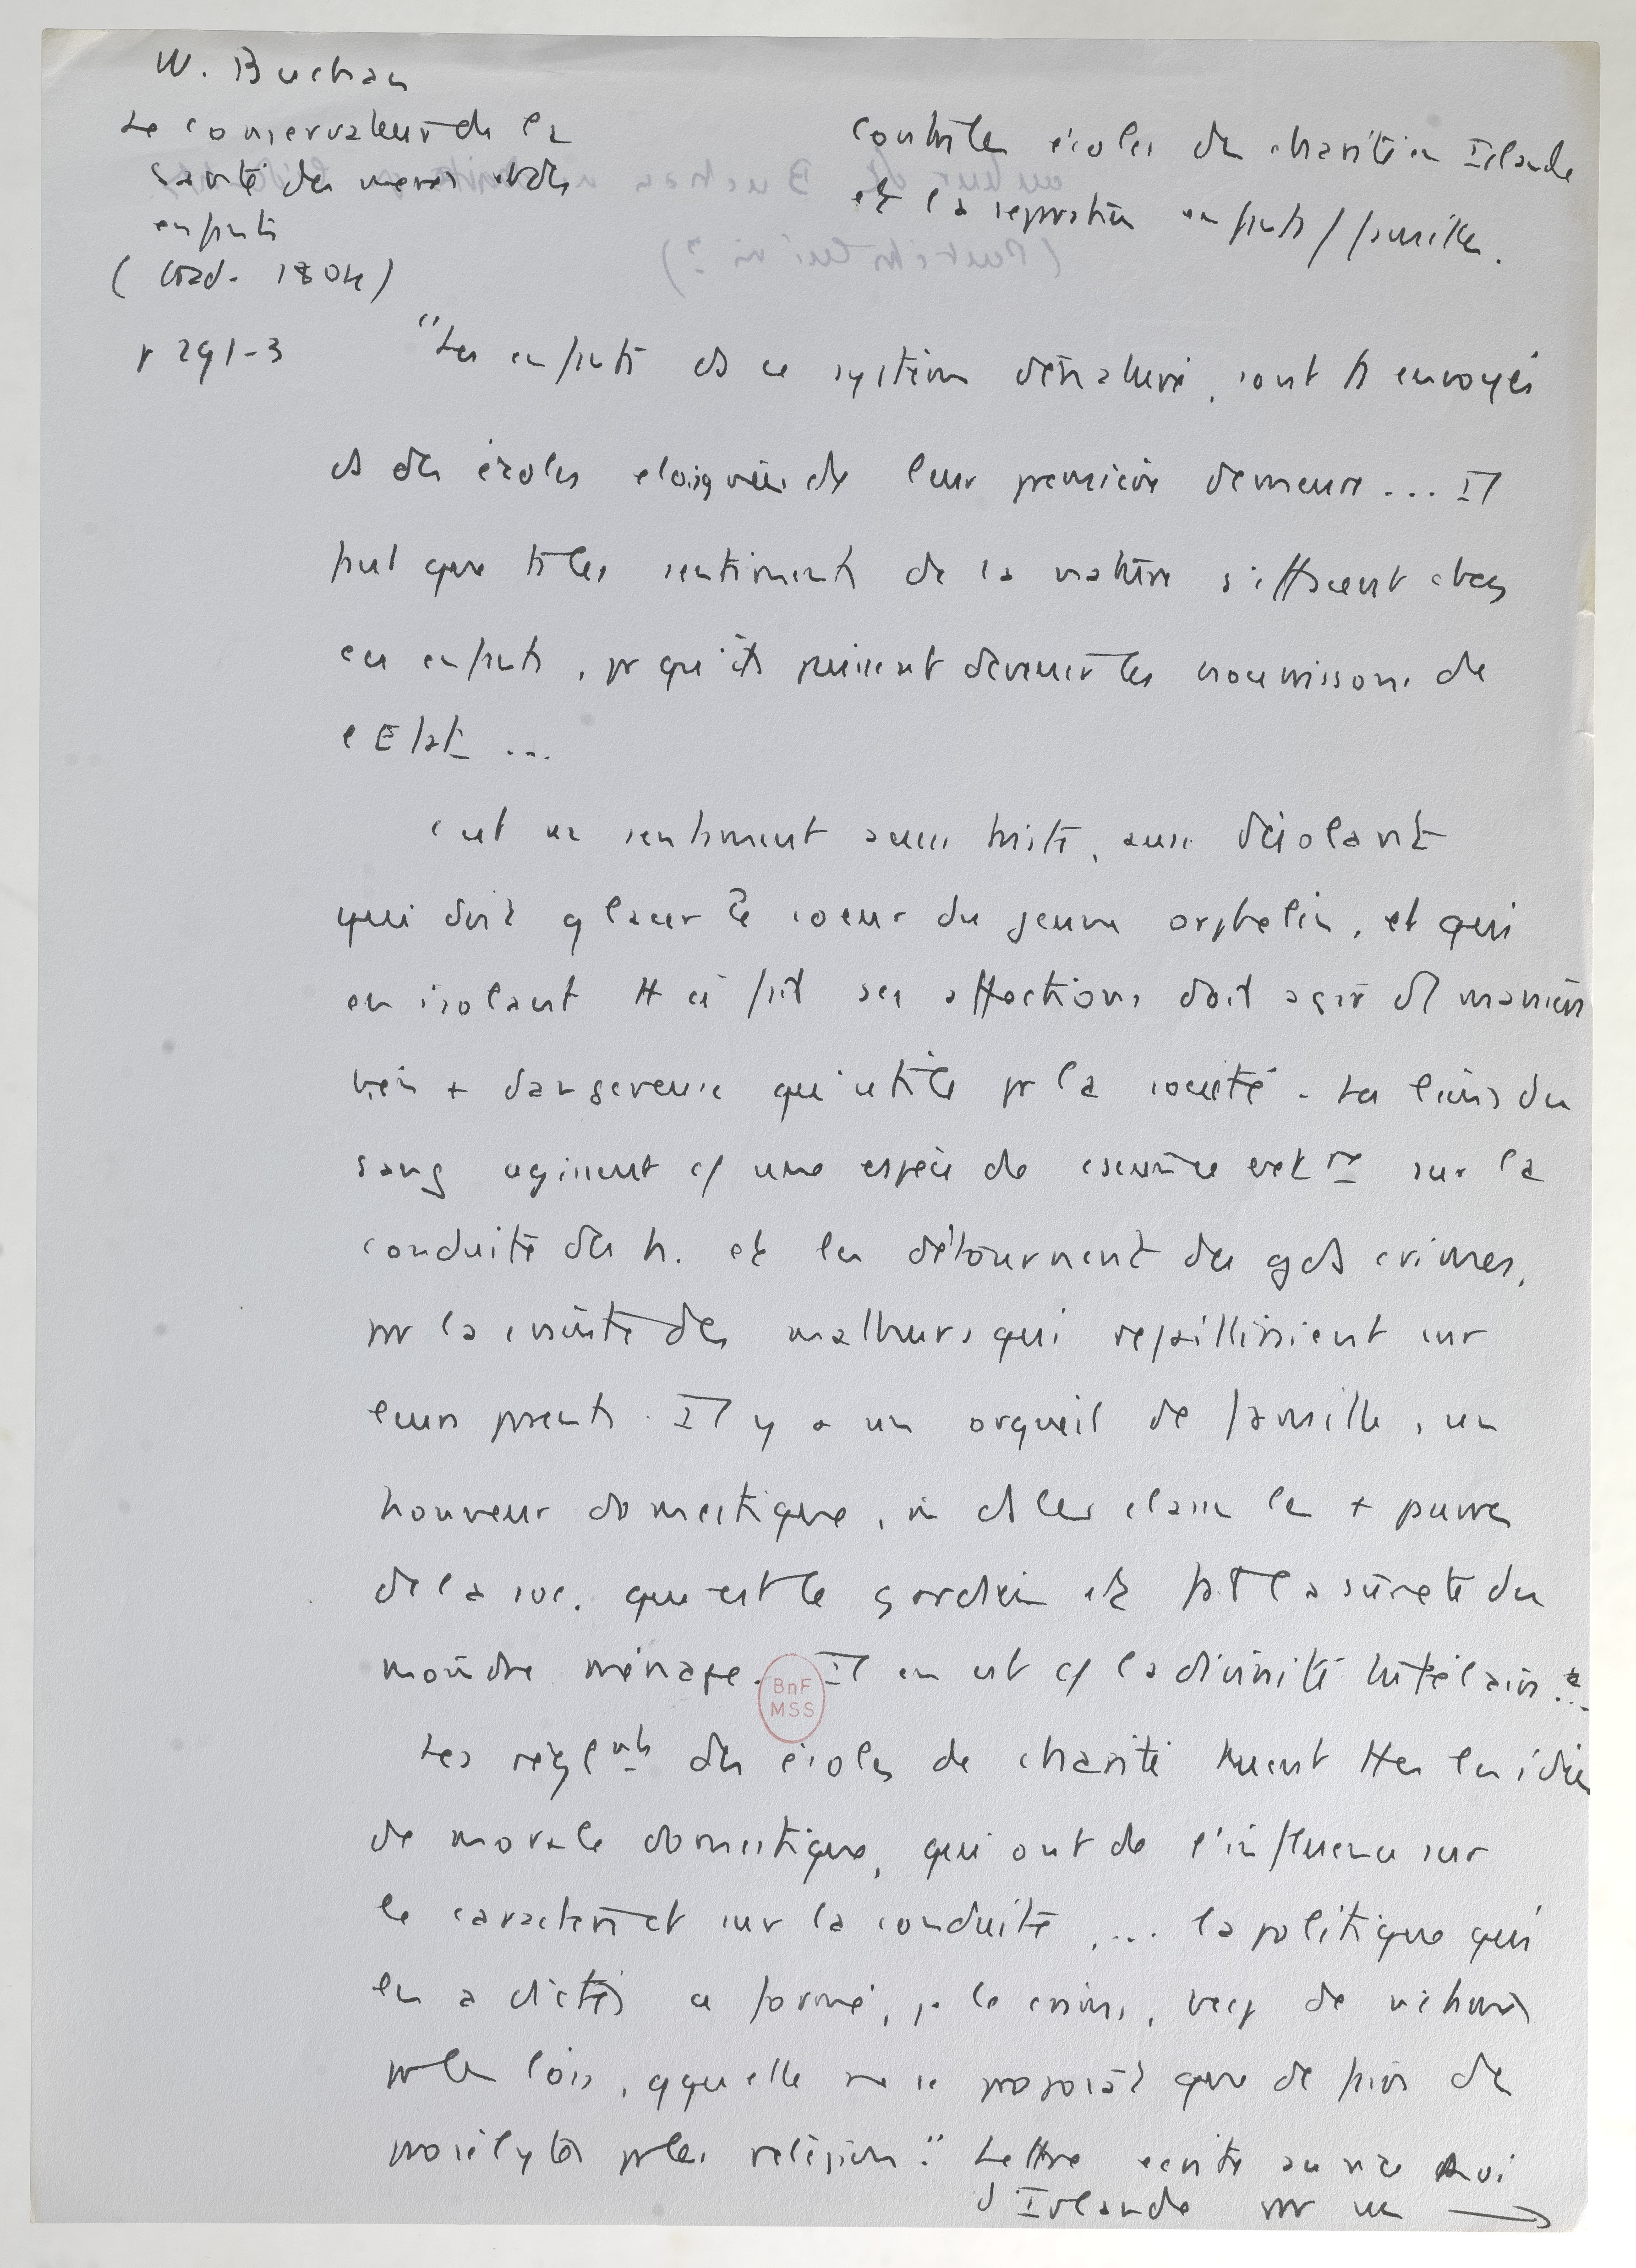 W. Buchan
Le conservateur de la
santé des mères et des
enfants
(trad. 1804)
p 291-3
Contre les écoles de charité en Irlande
et la séparation enfants/famille.
"Les enfants ds ce système dénaturé, sont ts envoyés
ds des écoles eloignées de leur première demeure... Il
faut que ts les sentiments de la nature s'effacent chez
ces enfants, pr qu'ils puissent devenir les nourrissons de
l'Etat ...
C'est un sentiment aussi triste, aussi désolant
qui doit glacer le coeur du jeune orphelin, et qui
en isolant tt à fait ses affections doit agir d'1 manière
bien + dangereuse qu'utile pr la société. Les liens du
sang agissent c/ une espèce de sur la
conduite des h. et les détournent des gds crimes,
par la crainte des malheurs qui rejailliraient sur
leurs parents. Il y a un orgueil de famille, un
honneur domestique, ds les classes les + pauvres
de la soc. qui est le gardien et fait la sûreté du
moindre ménage. Il en est c/ la divinité tutélaire...
Les règlmts des écoles de charité tuent ttes les idées
de morale domestique, qui ont de l'influence sur
le caractère et sur la conduite, ... la politique qui
les a dictés a formé, je le crains, bcp de victimes
pr les lois, qquelle ne se proposât que de faire des
prosélytes pr la religion." Lettre écrite au vice Roi
d'Irlande par un →
BnF
MSS